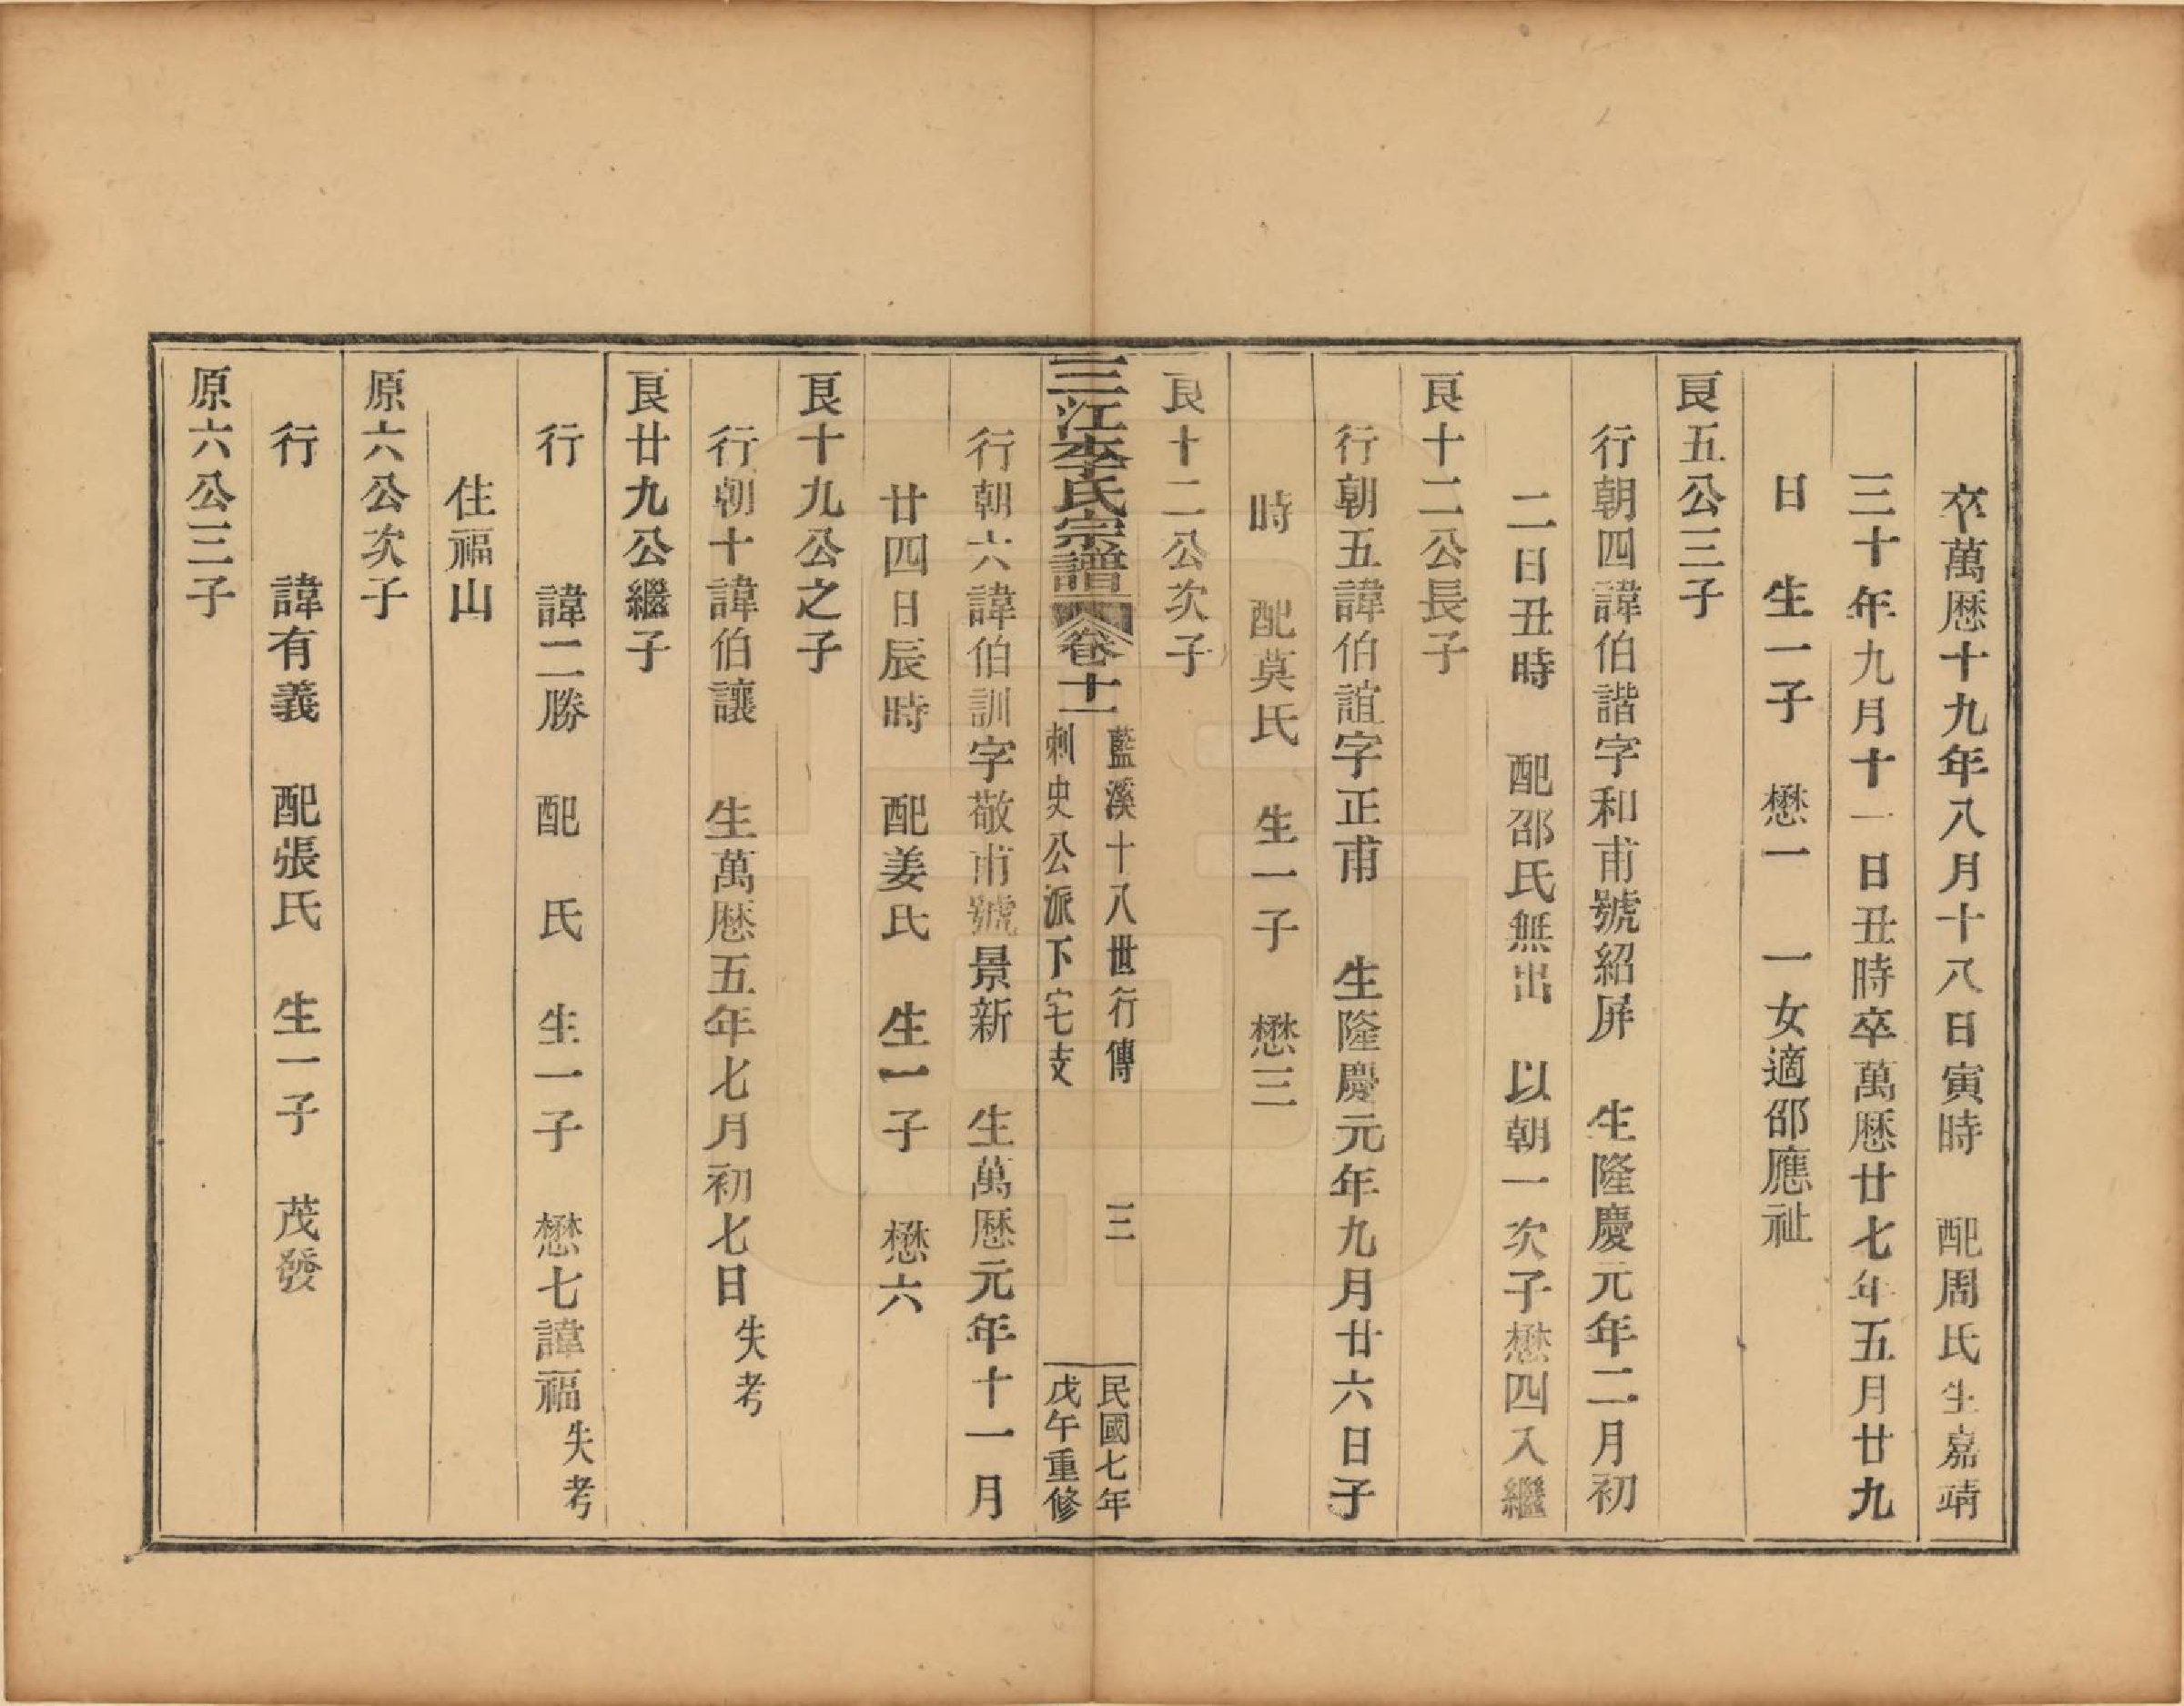 卒萬厯十九年八月十八日寅時　配周氏生嘉靖
三十年九月十一日丑時卒萬厯廿七年五月廿九
日　生一子　懋一　一女適邵應祉
良五公三子
行朝四諱伯諧字和甫號紹屏　生隆慶元年二月初
二日丑時　配邵氏無出　以朝一次子懋四入繼
良十二公長子
行朝五諱伯誼字正甫　生隆慶元年九月廿六日子
時　配莫氏　生一子　懋三
良十二公次子
三江李氏宗譜　卷十一
藍溪十八世行傳　三
刺史公派下宅支
民國七年
戊午重修
行朝六諱伯訓字敬甫號景新　生萬厯元年十一月
廿四日辰時　配姜氏　生一子　懋六
良十九公之子
行朝十諱伯讓　生萬厯五年七月初七日失考
良廿九公繼子
行　諱二勝　配　氏　生一子　懋七諱福失考
住福山
原六公次子
行　諱有義　配張氏　生一子　茂發
原六公三子